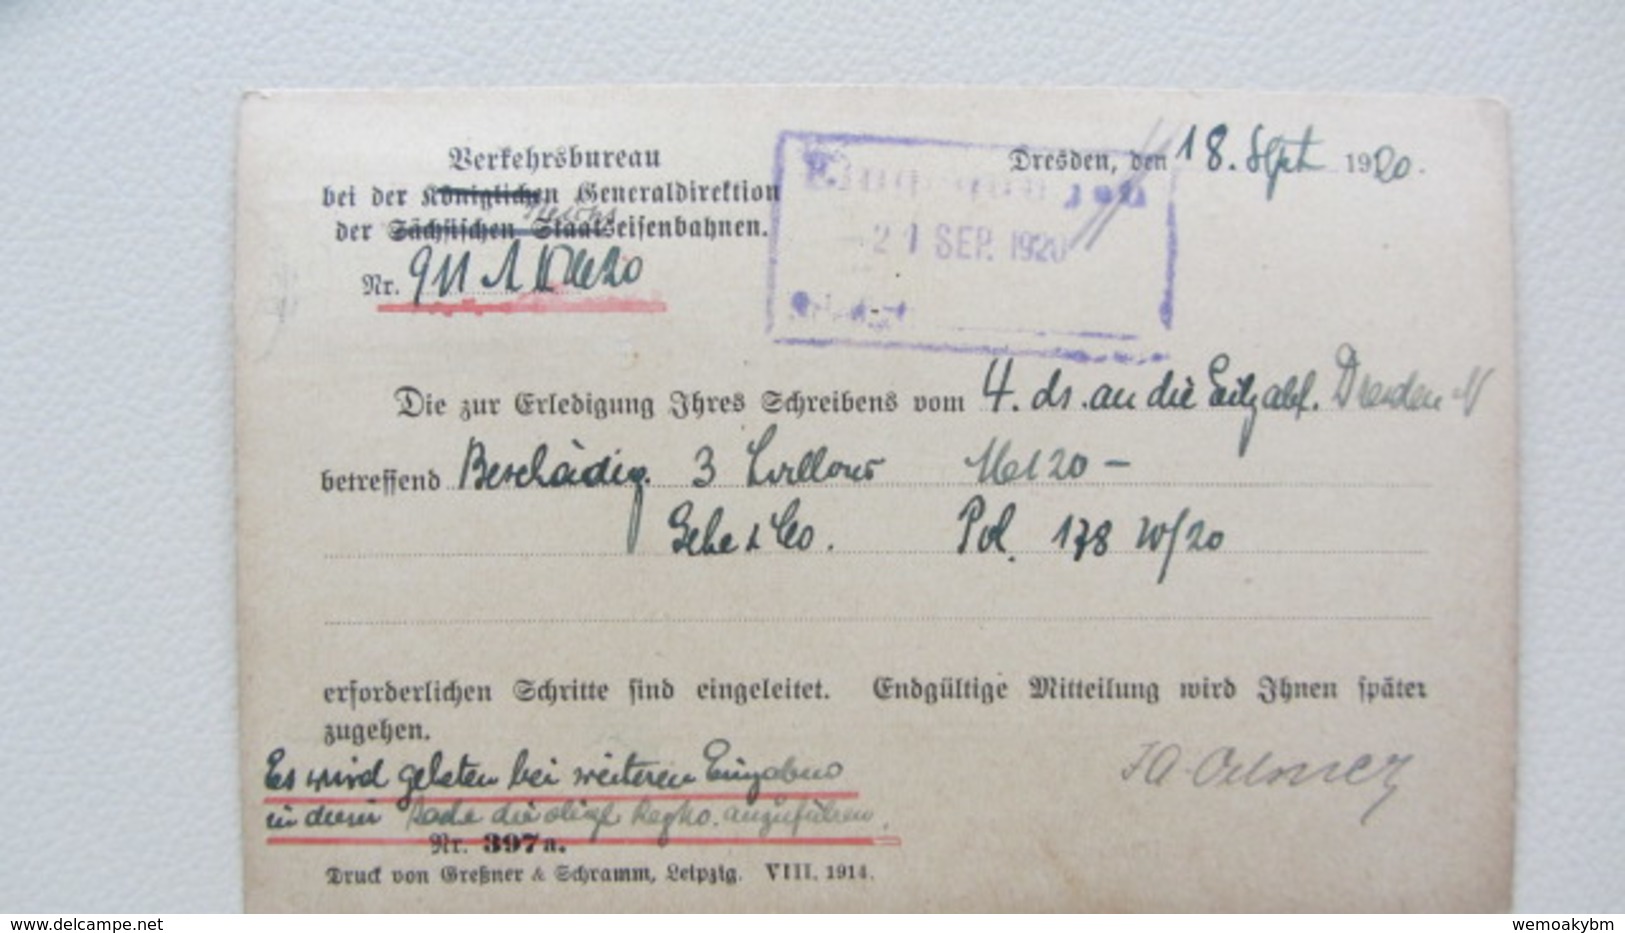 Verkehrsbureau
bei der Königlichen Generaldirektion
der Sächsischen Staatseisenbahnen.
Nr. 911
Dresden, den 18. Sept 1920.
Eingegangen
21 SEP. 1920
Die zur Erledigung Ihres Schreibens vom 4. ds. an die Dresden N
betreffend Beschädig. 3
Gehe & Co. Pol. 178 W/20
erforderlichen Schritte sind eingeleitet. Endgültige Mitteilung wird Ihnen später
zugehen.
Es wird gebeten bei weiteren Eingaben
in dieser Sache die anzuführen.
Nr. 397a.
Druck von Greßner & Schramm, Leipzig. VIII. 1914.
delcampe.net
wemoakybm